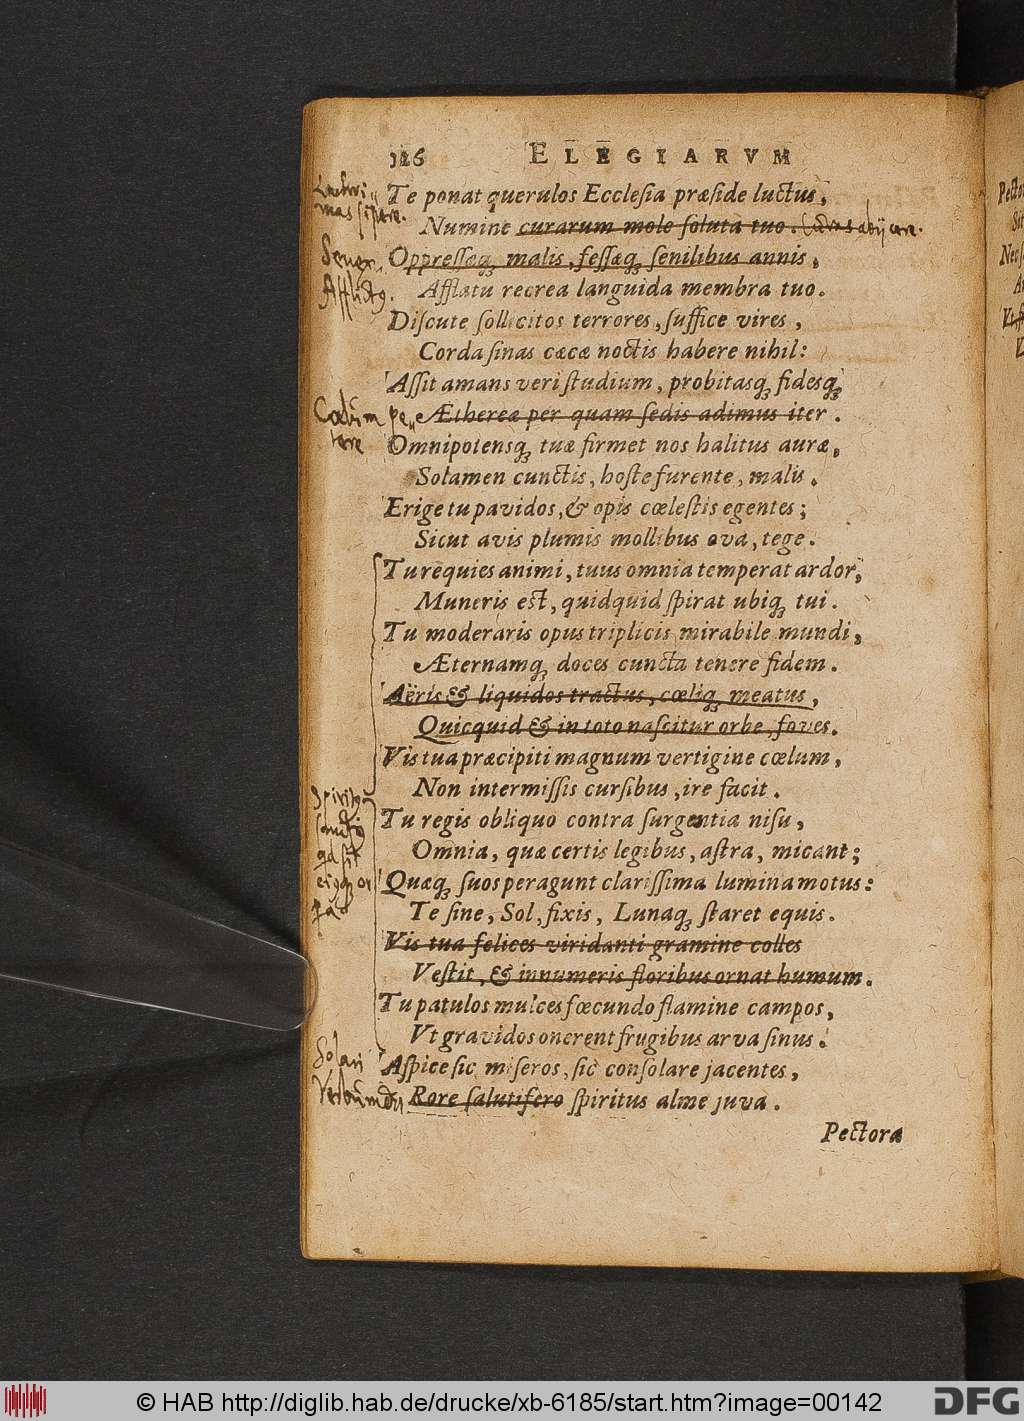 126 ELEGIARVM
Te ponat querulos Ecclesia præside luctus,
Numine curarum mole soluta tuo. Curas abijcere.
Oppressæq́; malis, fessæq́; senilibus annis,
Afflatu recrea languida membra tuo.
Discute sollicitos terrores, suffice vires,
Corda sinas cæcæ noctis habere nihil:
Assit amans veri studium, probitasq́; fidesq́;
Æthereæ per quam sedis adimus iter.
Omnipotensq́; tuæ firmet nos halitus auræ,
Solamen cunctis, hoste furente, malis.
Erige tu pavidos, & opis cœlestis egentes;
Sicut avis plumis mollibus ova, tege.
Tu requies animi, tuus omnia temperat ardor,
Muneris est, quidquid spirat ubiq́; tui.
Tu moderaris opus triplicis mirabile mundi,
Æternamq́; doces cuncta tenere fidem.
Aëris & liquidos tractus, cœliq́; meatus,
Quicquid & in toto nascitur orbe, foves.
Vis tua præcipiti magnum vertigine cœlum,
Non intermissis cursibus, ire facit.
Tu regis obliquo contra surgentia nisu,
Omnia, quæ certis legibus, astra, micant;
Quæq́; suos peragunt clarissima lumina motus:
Te sine, Sol, fixis, Lunaq́; staret equis.
Vis tua felices viridanti gramine colles
Vestit, & innumeris floribus ornat humum.
Tu patulos mulces fœcundo flamine campos,
Vt gravidos onerent frugibus arva sinus.
Aspice sic miseros, sic consolare jacentes,
Rore salutifero spiritus alme juva.
Pectora
mas sistere.
Senex.
Afflictus.
Cœlum pe„
tere
Spiritus
sanctus
qd sit
Solari
© HAB http://diglib.hab.de/drucke/xb-6185/start.htm?image=00142
DFG